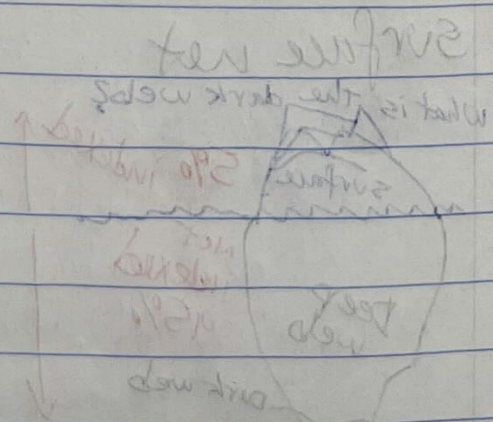 surface net
What is the dark web?
5% indexed
surface
not
indexed
Deep
web
95%
Dark web